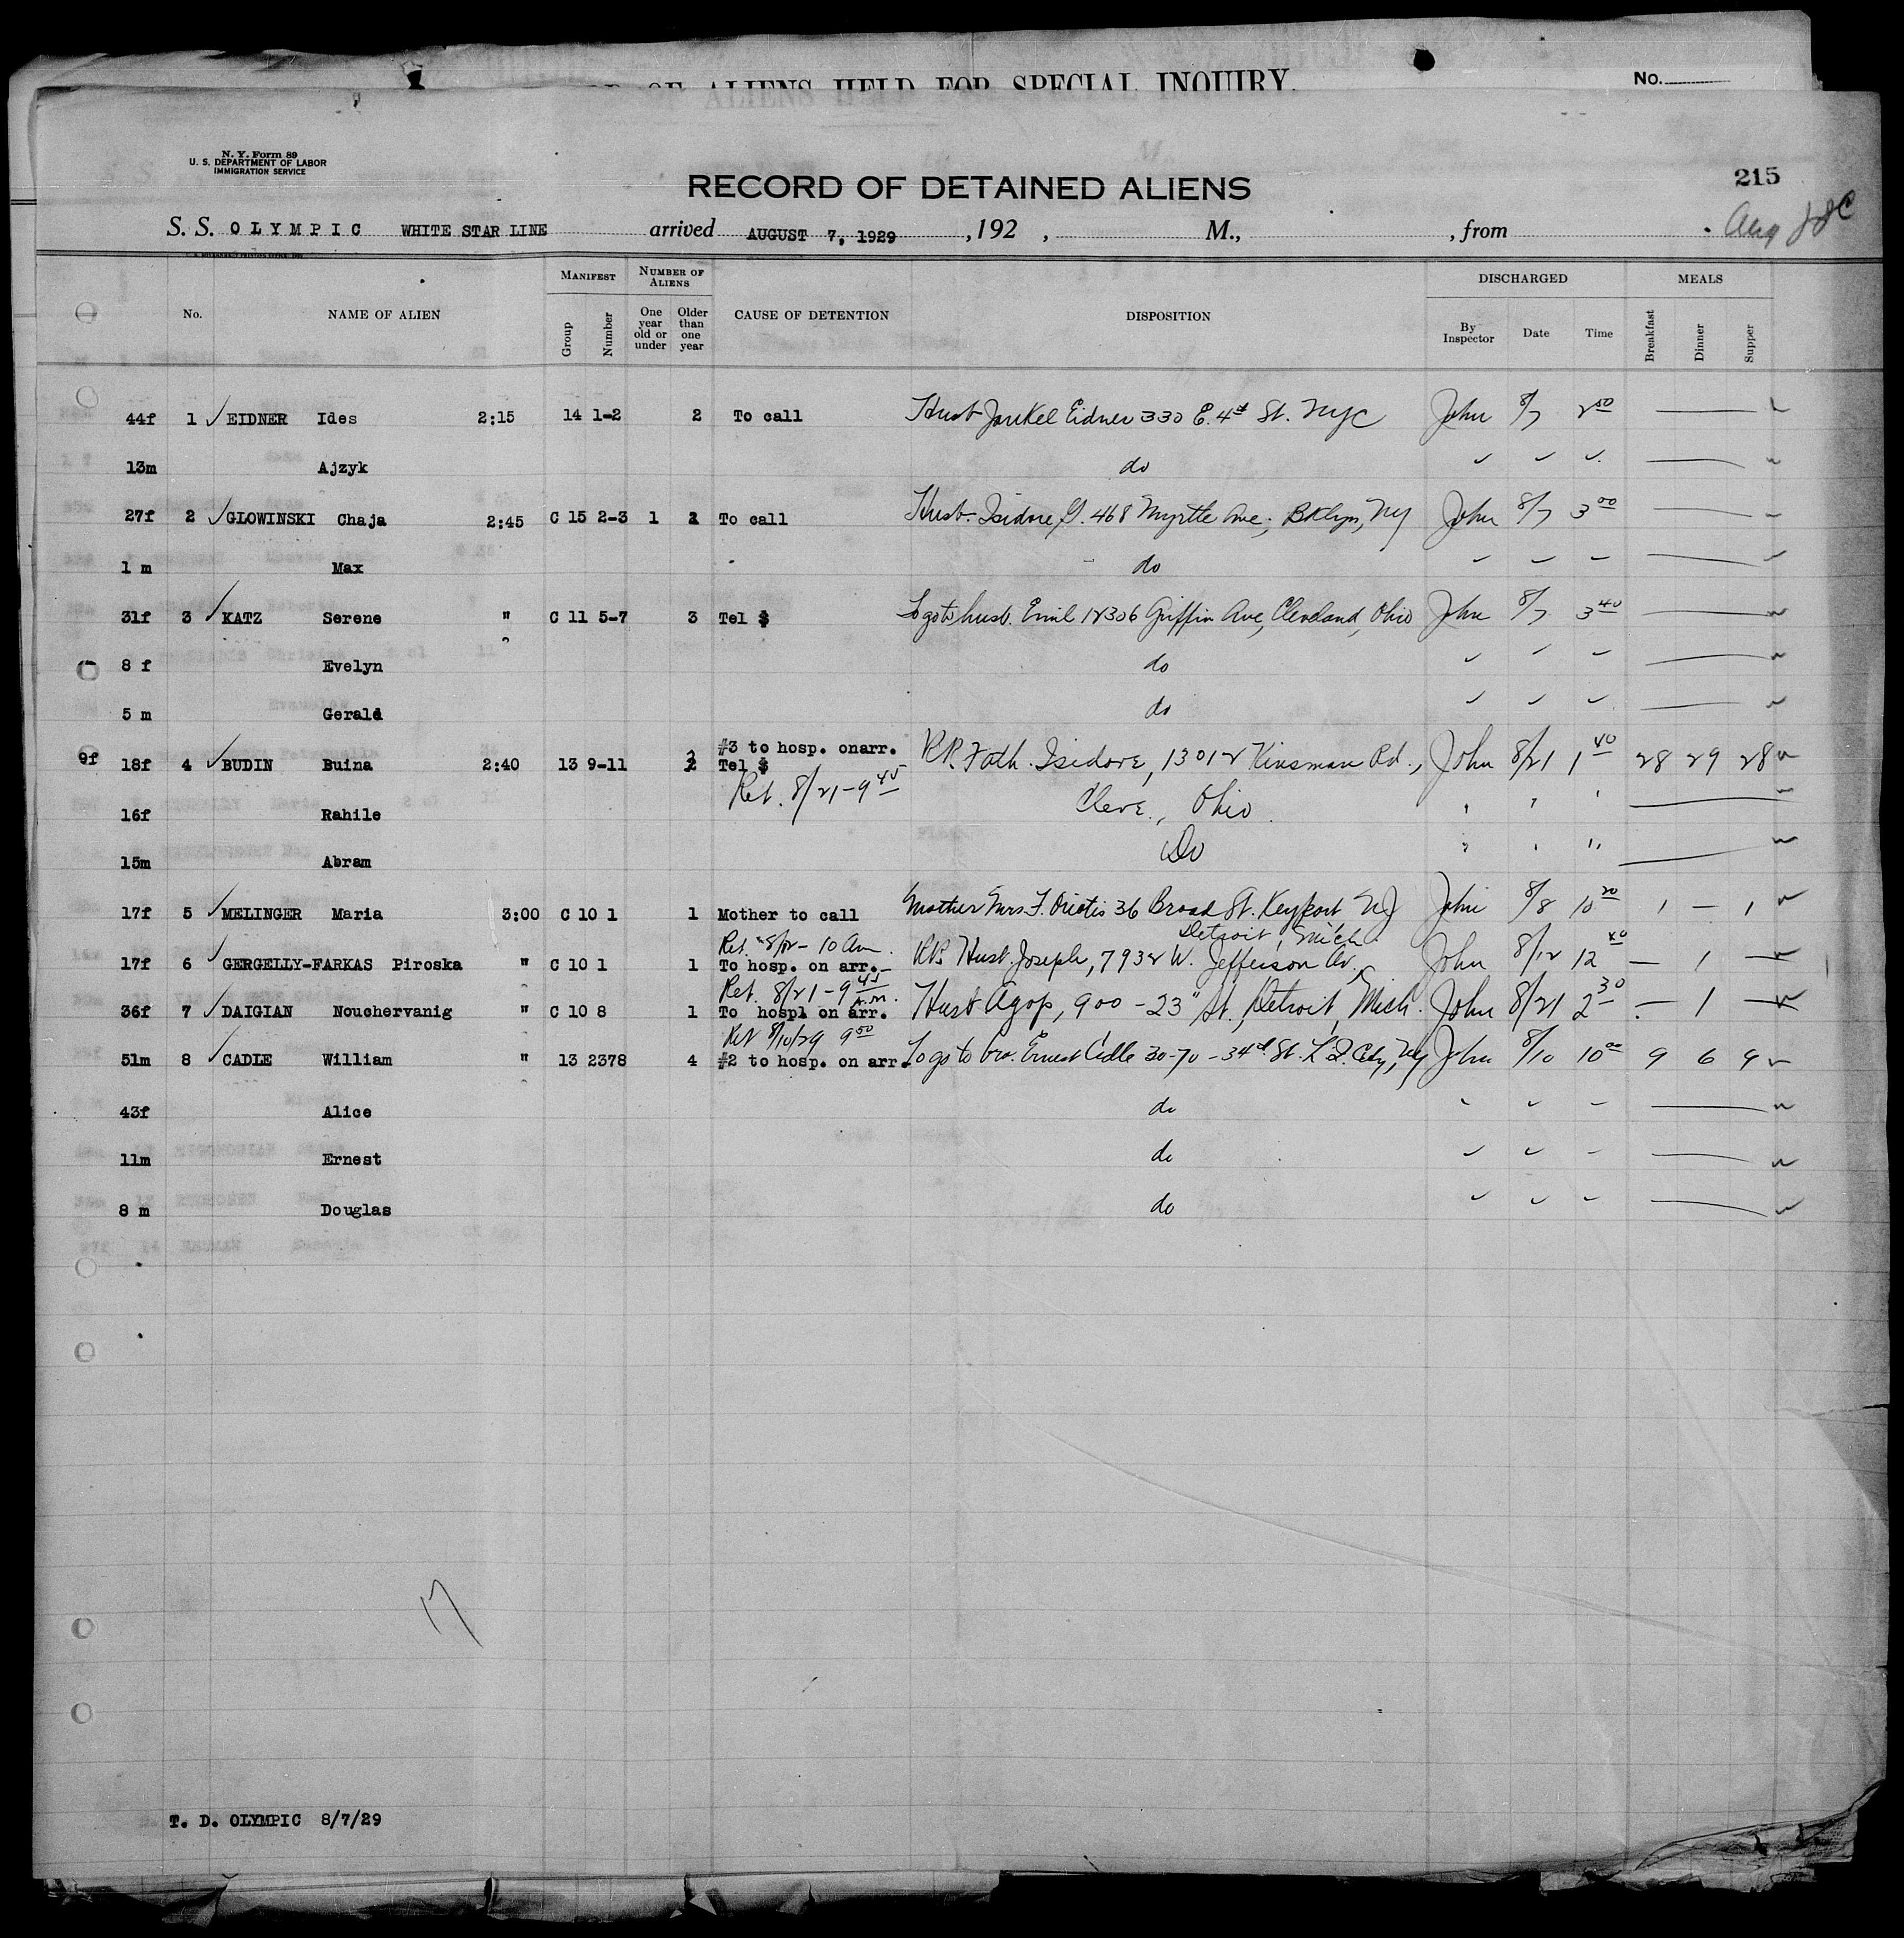 OF ALIENS HELD FOR SPECIAL INQUIRY.
No.
N. Y. Form 89
U. S. DEPARTMENT OF LABOR
IMMIGRATION SERVICE
RECORD OF DETAINED ALIENS
215
S. S. OLYMPIC WHITE STAR LINE arrived AUGUST 7, 1929 , 192 , M., , from . Aug
MANIFEST NUMBER OF ALIENS DISCHARGED MEALS
No. NAME OF ALIEN Group Number One year old or under Older than one year CAUSE OF DETENTION DISPOSITION By Inspector Date Time Breakfast Dinner Supper
44f 1 ✓ EIDNER Ides 2:15 14 1-2 2 To call Husb Jankel Eidner 330 E. 4th St. NYC John 8/7 2 50
13m Ajzyk do
27f 2 ✓ GLOWINSKI Chaja 2:45 C 15 2-3 1 1 To call Husb. Isidore G. 468 Myrtle Ave; Bklyn, NY John 8/7 3 00
1 m Max do
31f 3 ✓ KATZ Serene " C 11 5-7 3 Tel $ To go to husb. Emil 12306 Griffin Ave, Cleveland, Ohio John 8/7 3 40
8 f Evelyn do
5 m Gerald do
#3 to hosp. onarr.
9f 18f 4 ✓ BUDIN Buina 2:40 13 9-11 Tel $ RR. Fath. Isidore, 13012 Kinsman Rd., John 8/21 1 40 28 29 28
Ret. 8/21-9 45
16f Rahile Cleve., Ohio
15m Abram Do
17f 5 ✓ MELINGER Maria 3:00 C 10 1 1 Mother to call Mother Mrs. F. 36 Broad St. Keyport NJ John 8/8 10 20 1 — 1
Ret. 8/12 - 10 am Detroit, Mich.
17f 6 ✓ GERGELLY-FARKAS Piroska " C 10 1 1 To hosp. on arr. RR. Husb. Joseph, 7932 W. Jefferson Av. John 8/12 12 40 — 1 —
Ret. 8/21-9 45 A.M.
36f 7 ✓ DAIGIAN Nouchervanig " C 10 8 1 To hospl on arr. Husb Agop, 900 - 23" St., Detroit, Mich. John 8/21 2 30 — 1 —
Ret 8/10/29 9 50
51m 8 ✓ CADLE William " 13 2378 4 #2 to hosp. on arr. To go to bro. Ernest Cadle 30-70-34th St. L.I. City, NY John 8/10 10 00 9 6 9
43f Alice do
11m Ernest do
8 m Douglas do
17
T. D. OLYMPIC 8/7/29